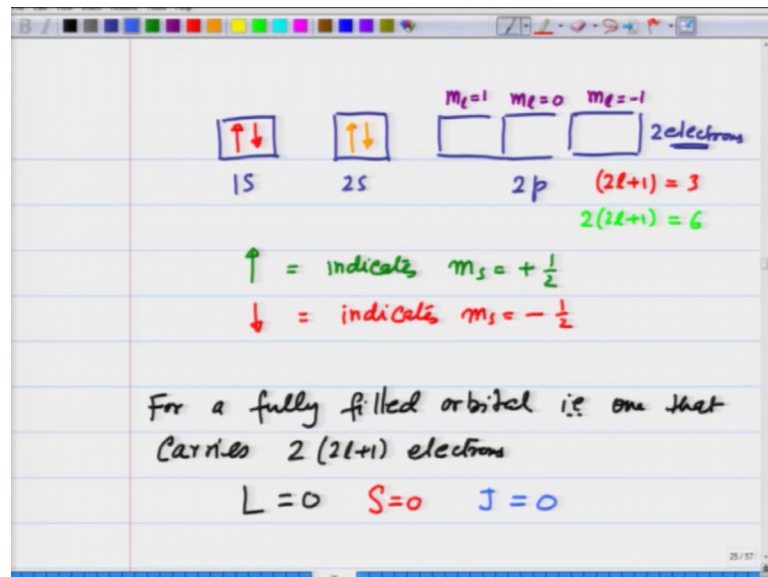 mℓ=1 mℓ=0 mℓ=-1
↑↓ ↑↓ 2 electrons
1S 2S 2p (2ℓ+1) = 3
2(2ℓ+1) = 6
↑ = indicates ms = + 1/2
↓ = indicates ms = - 1/2
For a fully filled orbital ie one that
Carries 2 (2ℓ+1) electrons
L = 0 S=0 J = 0
25 / 57